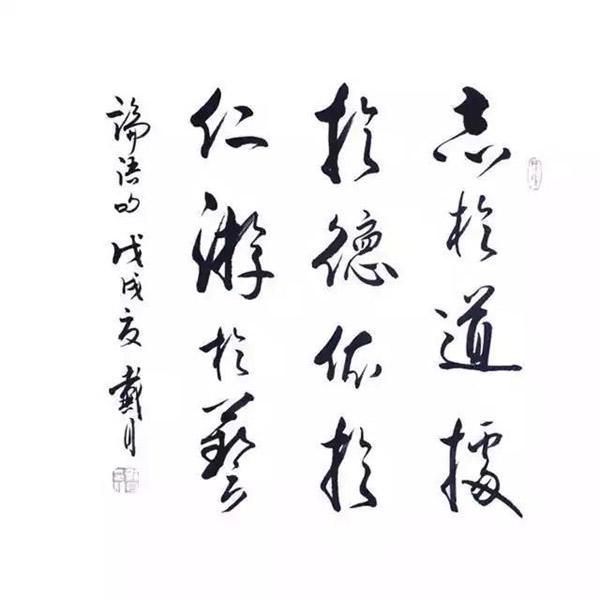 志於道據
於德依於
仁游於藝
論語句 戊戌夏 戴月